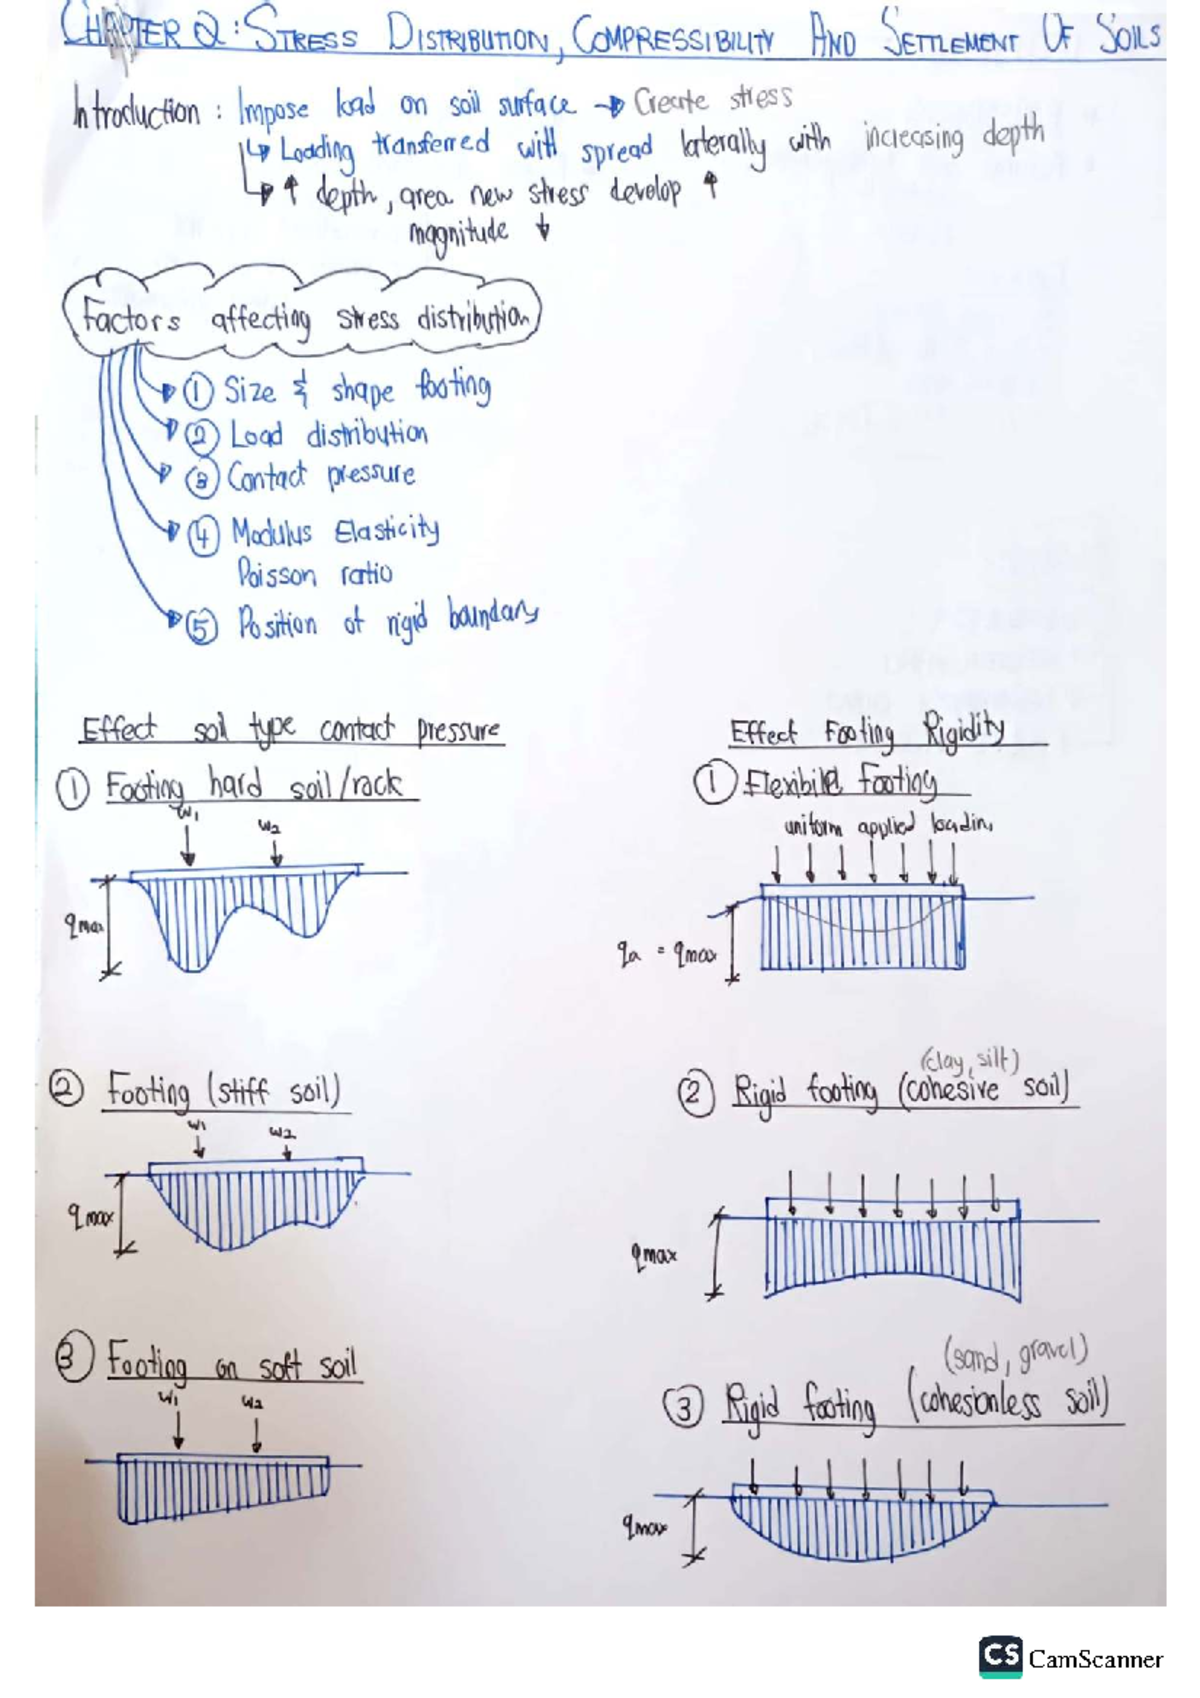 CHAPTER 2: STRESS DISTRIBUTION, COMPRESSIBILITY AND SETTLEMENT OF SOILS
Introduction : Impose load on soil surface → Create stress
↳ Loading transferred with spread laterally with increasing depth
↳ ↑ depth, area new stress develop ↑
magnitude ↓
Factors affecting stress distribution
① Size & shape footing
② Load distribution
③ Contact pressure
④ Modulus Elasticity
Poisson ratio
⑤ Position of rigid boundary
Effect soil type contact pressure
① Footing hard soil/rock
w1
w2
qmax
② Footing (stiff soil)
w1
w2
qmax
③ Footing on soft soil
w1
w2
Effect Footing Rigidity
① Flexibile Footing
uniform applied loadin
qa = qmax
(clay, silt)
② Rigid footing (cohesive soil)
qmax
(sand, gravel)
③ Rigid footing (cohesionless soil)
qmax
CS CamScanner